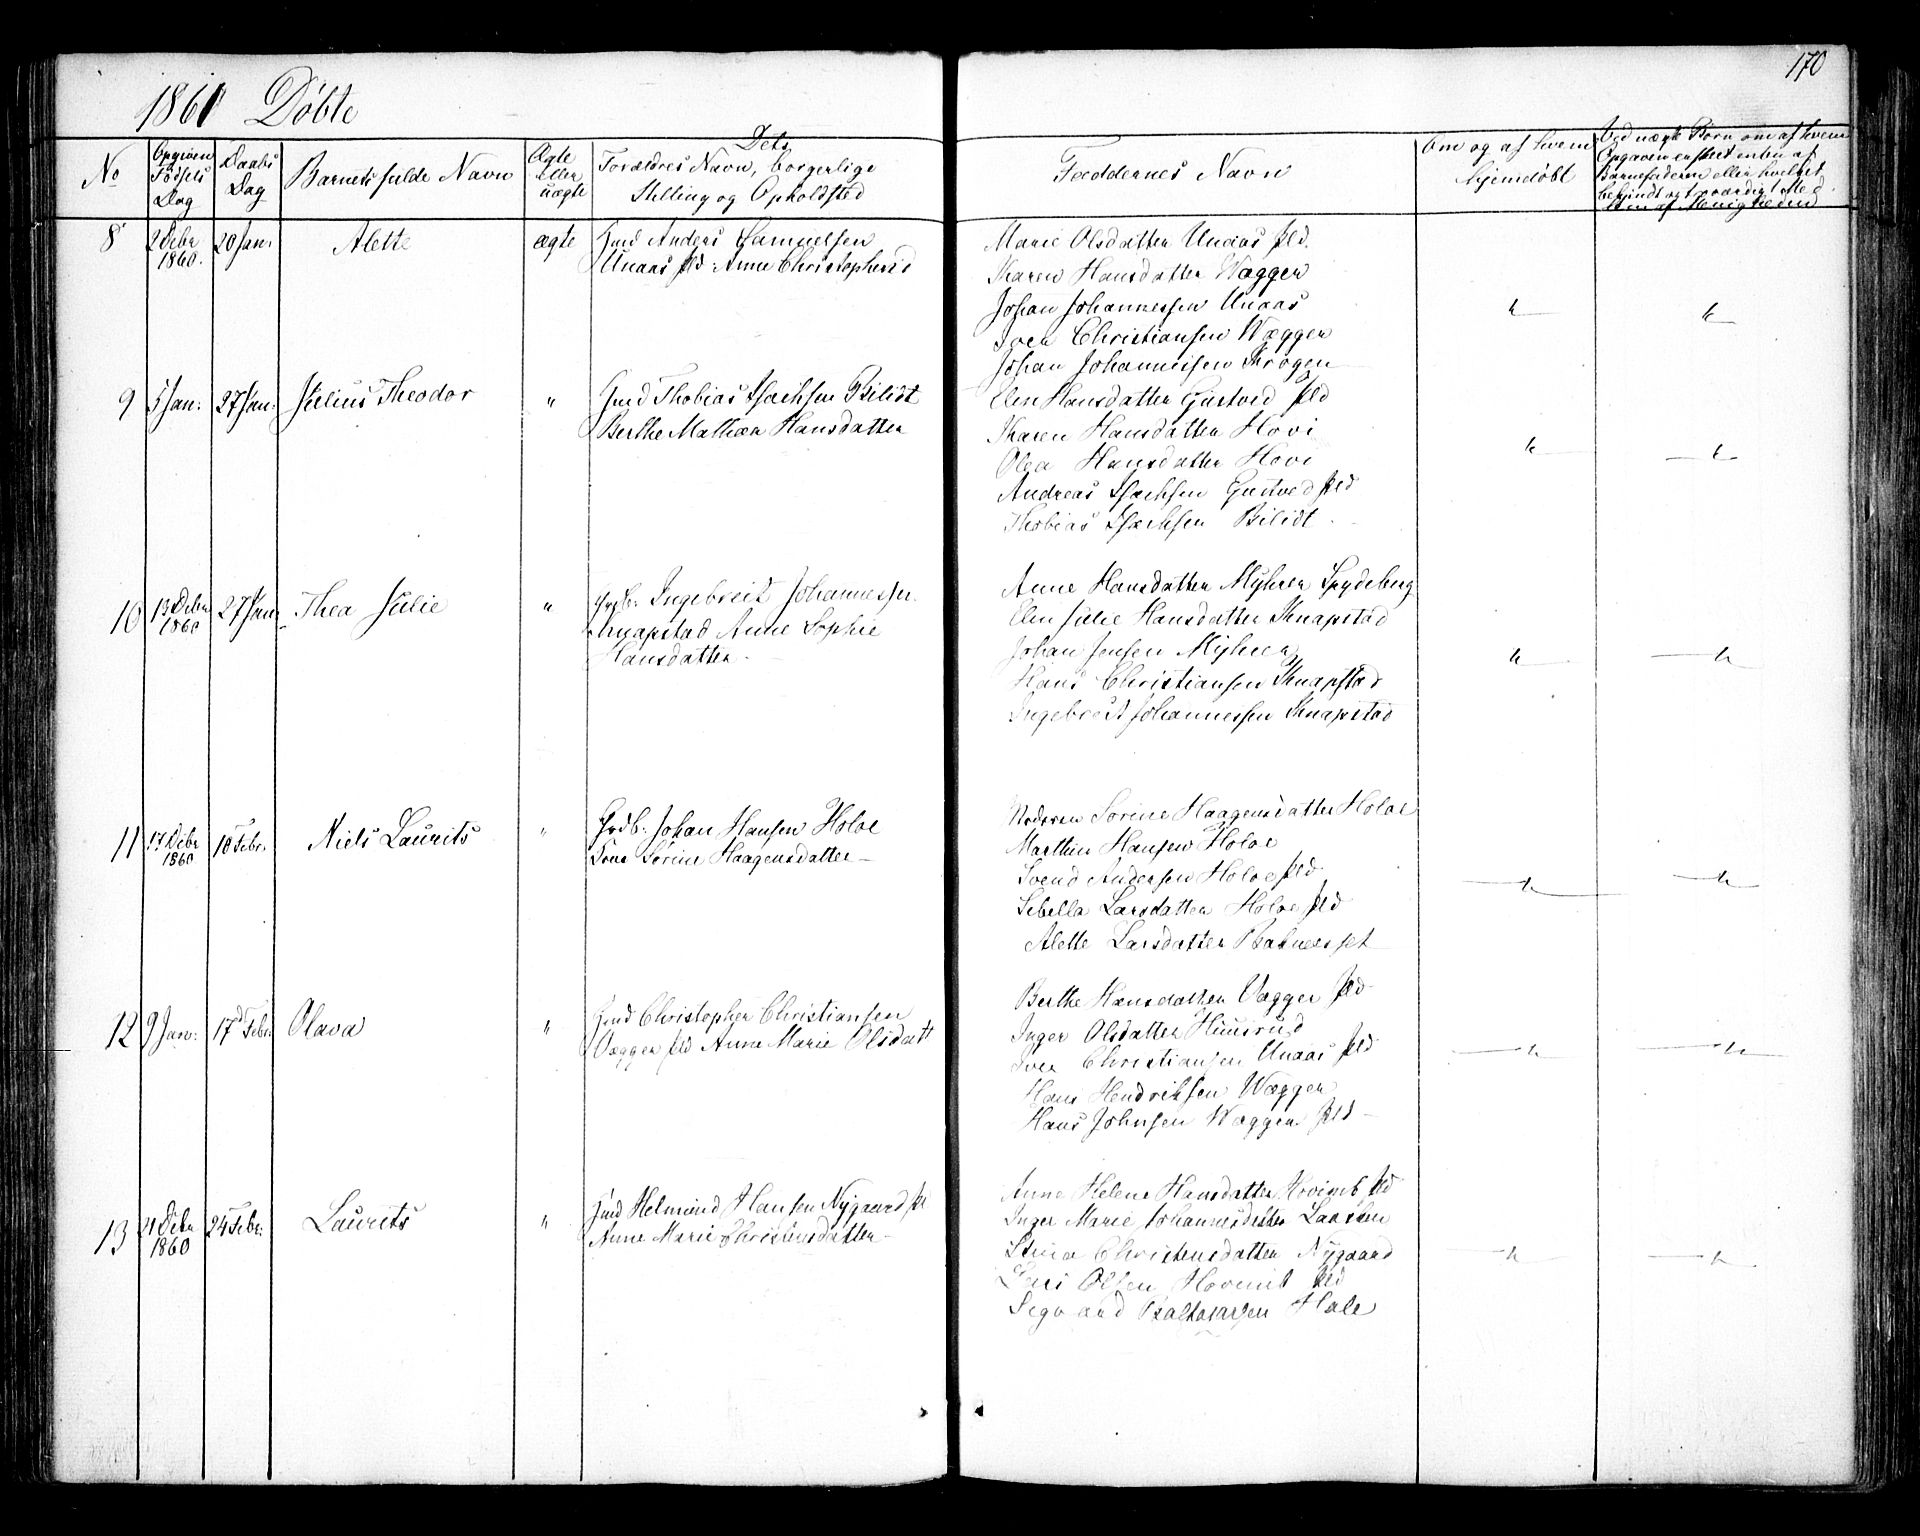 170
1861 Döbte
No
Opgiven Födsels Dag
Daabs Dag
Barnets fulde Navn
Ægte eller uægte
Dets Forældres Navn, borgerlige Stilling og Opholdsted
Faddernes Navn
Om og af hvem hjemdöbt
Ved uægte Börn om af hvem
Opgaven er skeet enten af
Barnefaderen eller hvilket
bekjendt og troværdigt Med
lem af Menigheden
8 2 Debr 1860. 20 Jan: Alette ægte Gmd Anders Samuelsen
Unaas pld: Anne Christophersd
Marie Olsdatter Unaas pld.
Karen Hansdatter Wægger
Johan Johannessen Unaas
Iver Christiansen Wægger
Johan Johannessen Krogen
9 5 Jan: 27 Jan: Julius Theodor " Gmd Thobias Isachsen Bilidt
Berthe Mathea Hansdatter
Elen Hansdatter Gustved pld
Karen Hansdatter Hovi
Olea Hansdatter Hovi
Andreas Isachsen Gustved pld
Thobias Isachsen Bilidt
10 13 Debr 1860 27 Jan: Thea Julie " Grdb. Ingebreit Johannessen
Knapstad Anne Sophie
Hansdatter
Anne Hansdatter Myhrer Spydeberg
Elen Julie Hansdatter Knapstad
Johan Jensen Myhrer
Hans Christiansen Knapstad
Ingebreit Johannessen Knapstad
11 17 Debr 1860 10 Febr. Niels Laurits " Grdb. Johan Hansen Holoe
Sörine Haagensdatter
Moderen Sörine Haagensdatter Holoe
Marthin Hansen Holoe
Svend Andersen Holoe pld
Sebella Larsdatter Holoe pld
Alette Larsdatter
12 9 Jan: 17d Febr Olava " Gmd Christopher Christiansen
Vægger pld Anne Marie Olsdatt
Berthe Hansdatter Vægger pld
Inger Olsdatter
Iver Christiansen Unaas pld
Hans Hendriksen Wægger
Hans Johnsen Wægger pld
13 21 Debr 1860 24 Febr. Laurits " Gmd Helmund Hansen Nygaard pl
Anne Marie Christensdatter
Anne Helene Hansdatter pld
Inger Marie Johannesdatter
Stina Christensdatter Nygaard
Lars Olsen pld
Balthasarsen